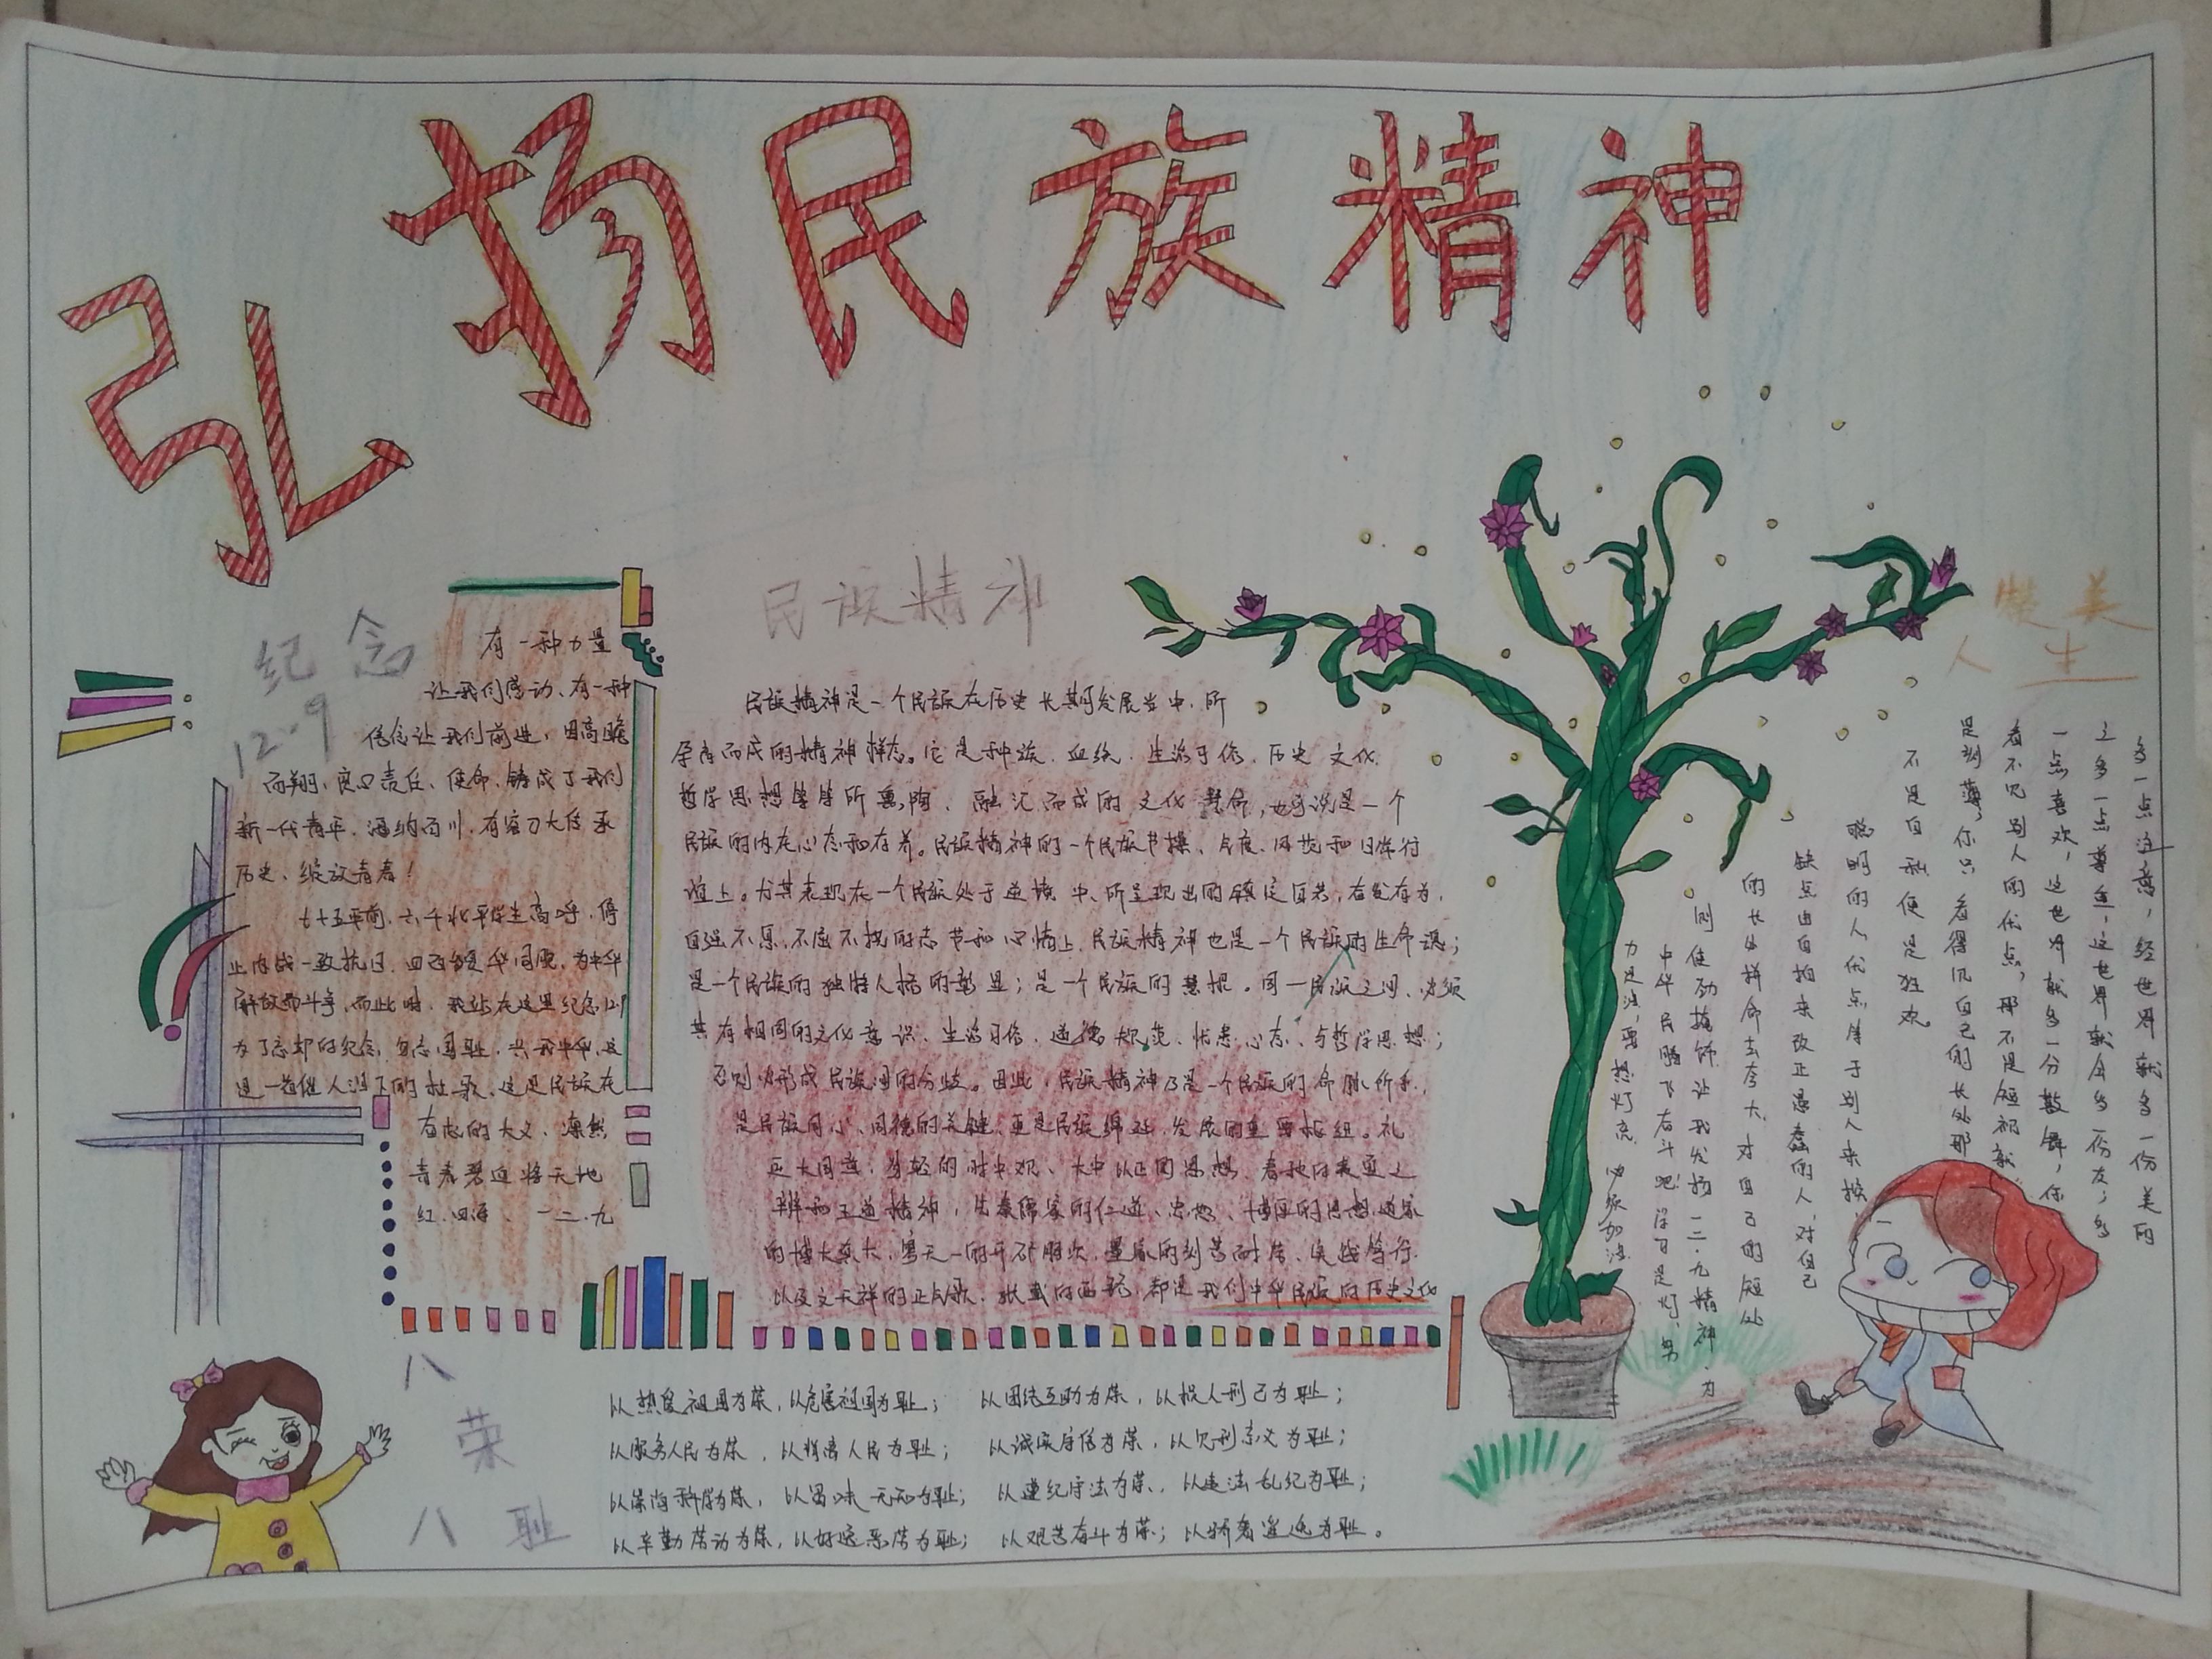 弘扬民族精神
纪念
12·9
有一种力量
让我们感动、有一种
信念让我们前进,因高瞻
而翔,良心责任、使命、铸成了我们
新一代青年,海纳百川,有容乃大传承
历史、绽放青春!
七十五年前,六千北平学生高呼,停
止内战一致抗日,
解放而斗争,而此时,我站在这里纪念12.9
为了忘却的纪念,勿忘国耻,兴我中华,这
是一首催人泪下的壮歌,这是民族存
亡的大义、凛然
青春碧血将天地
红.四海、一二.九
民族精神
民族精神是一个民族在历史长期发展当中,所
孕育而成的精神样态。它是种族、血统、生活习俗、历史文化、
哲学思想等等所熏陶、融汇而成的文化慧命,也可说是一个
民族的内在心态和存养。民族精神的一个民族节操、气度、风范和日常行
谊上。尤其表现在一个民族处于逆境中、所呈现出的镇定自若,奋发有为,
自强不息,不屈不挠的志节和心情上,民族精神也是一个民族的生命魂;
是一个民族的独特人格的彰显;是一个民族的慧根。同一民族之间、必须
共有相同的文化意识、生活习俗、道德规范、忧患心态、与哲学思想;
否则必形成民族间的分歧。因此,民族精神乃是一个民族的命脉所系,
是民族同心、同德的关键、更是民族绵延、发展的重要枢纽。礼
的时中观、大中以正的思想、春秋的夷夏之
辨和王道精神,先秦儒家的仁道、忠恕、博厚的思想,道家
的博大真大,墨家的刻苦耐劳、
以及文天祥的正气歌、张载的西铭,都是我们中华民族的历史文化
美
人生
多一点注意,经世界就多一份美的
之多一点尊重,这世界就会多一份友;多
一点喜欢,这世界就多一分鼓舞,你
看不见别人的优点,那不是短视就
是刻薄,你只看得见自己的长处那
不是自私便是狂欢
聪明的人优点等于别人来挨,
缺点由自拍来改正愚蠢的人,对自己
的长处拼命去夸大,对自己的短处
则使劲掩饰让我发扬一二·九精神,为
中华民腾飞右斗吧!学习是灯,努
力是油,要想灯亮,必须加油
八
荣
八 耻
以热爱祖国为荣,以危害祖国为耻; 以团结互助为荣,以损人利己为耻;
以服务人民为荣,以背离人民为耻; 以诚实守信为荣,以见利忘义为耻;
以崇尚科学为荣,以愚昧无知为耻; 以遵纪守法为荣,以违法乱纪为耻;
以辛勤劳动为荣,以好逸恶劳为耻; 以艰苦奋斗为荣;以骄奢淫逸为耻。